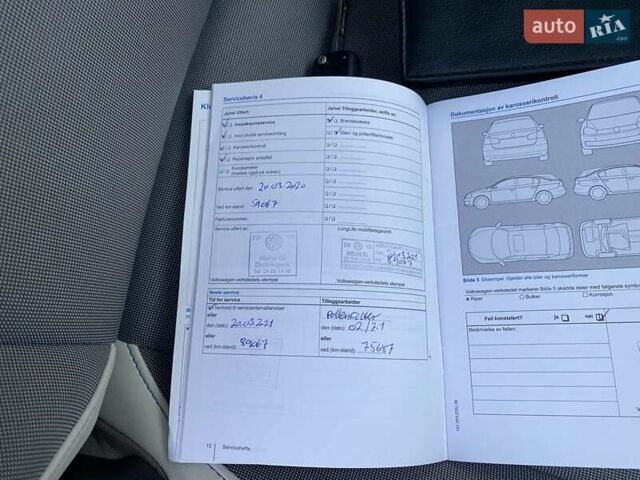 auto RIA
.com
Servicebevis 4
Ja/nei Utført:
Ja/nei Tilleggsarbeider, skifte av:
Inspeksjonsservice
Bremsevæske
med utvidet serviceomfang
Støv- og pollenfilterinnsats
Karosserikontroll
Reparasjon anbefalt
Kundeønsker
(merkes også på ordren)
Service utført den: 20.03.2020
Ved km-stand: 59067
Fakturanummer:
Service utført av:
LongLife mobilitetsgaranti:
Møller Bil
Tlf. 24 03 14 00
MØLLER BIL
89067
Volkswagen-verkstedets stempel
Volkswagen-verkstedets stempel
Neste service
Tid for service
Tilleggsarbeider
henhold til serviceintervallanviser
Pollenfilter
eller
den (dato): 20.03.21
den (dato): 02/21
eller
eller
ved (km-stand): 89067
ved (km-stand): 75687
12
Servicehefte
Dokumentasjon av karosserikontroll
Bilde 5 Eksempel: Gjelder alle biler og karosseriformer
Volkswagen-verkstedet markerer Bilde 5 skadde deler med følgende symbo
Riper
Bulker
Korrosjon
Feil konstatert?
ja
nei
Beskrivelse av feilen: